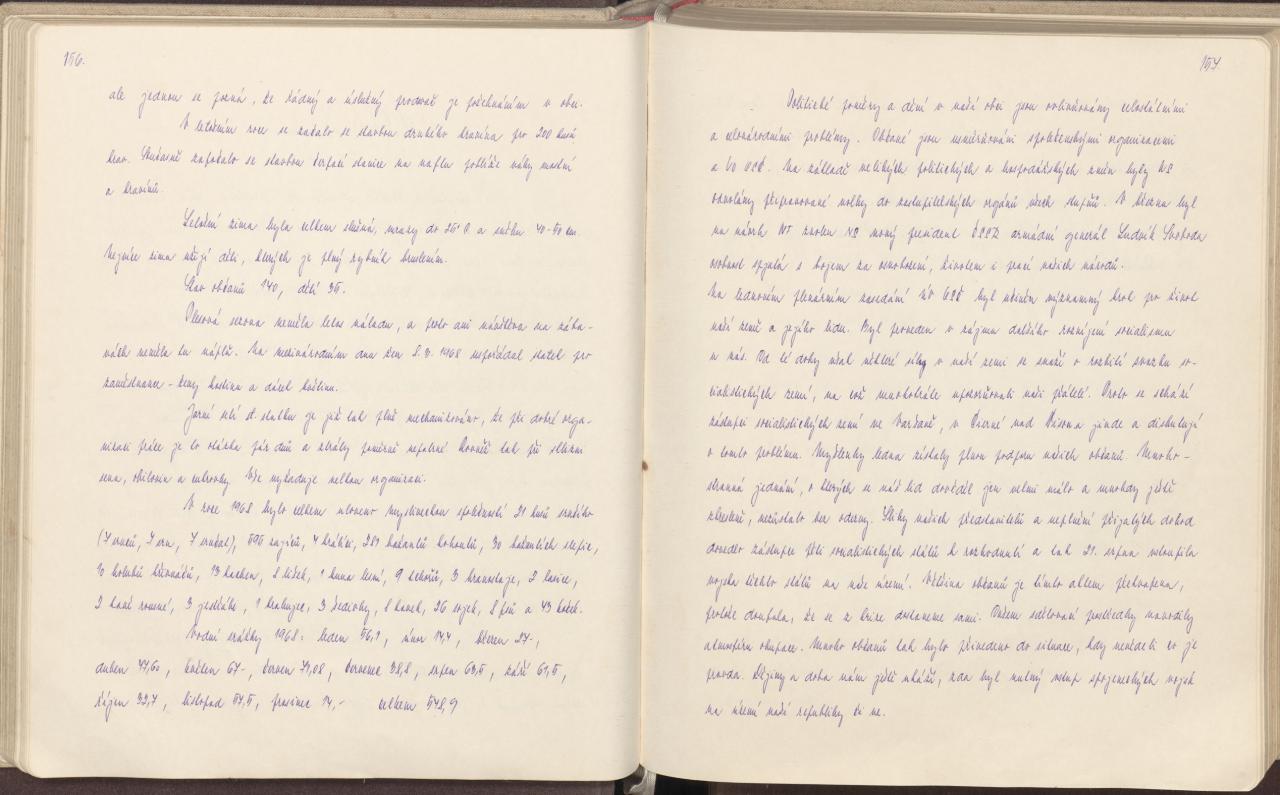 156.
ale jednou se pozná, že řádný a úslužný prodavač je požehnáním v obci.
V letošním roce se začalo se stavbou druhého kravína pro 200 kusů
krav. Současně započalo se stavbou čerpací stanice na naftu poblíže váhy mostní
a kravínů.
Letošní zima byla celkem slušná, mrazy do 25°C a sněhu 40-50 cm.
Nejvíce zimu užijí děti, kterých je plný rybník bruslením.
Stav občanů 140, dětí 35.
Plesová sezona neměla letos náladu, a proto ani návštěva na zába-
vách neměla tu náplň. Na mezinárodním dnu žen 8.3. 1968 uspořádal statek pro
zaměstnance - ženy hostinu a dárek květinu.
Jarní setí st. statku je již tak plně mechanisováno, že při dobré orga-
nisaci práce je to otázka pár dnů a ztráty poměrně nepatrné. Rovněž tak při sklizni
sena, obilovin a cukrovky. Vše vyžaduje velkou organisaci.
V roce 1968 bylo celkem uloveno mysliveckou společností 21 kusů srnčího
(7 srnců, 7 srn, 7 srnčat), 595 zajíců, 4 králíci, 281 bažantů kohoutů, 30 bažantích slepic,
10 holubů hřivnáčů, 13 kachen, 8 lišek, 1 kuna lesní, 9 tchořů, 3 hranostaje, 2 lasice,
2 káně rousné, 3 jestřábi, 1 krahujec, 3 šedivky, 8 kavek, 26 sojek, 8 psů a 43 koček.
Vodní srážky 1968: leden 56,1, únor 14,4, březen 27-,
duben 47,60, květen 67-, červen 71,08, červenec 38,8, srpen 63,5, září 61,5,
říjen 32,7, listopad 57,5, prosinec 14,- celkem 548,9
157.
Politické poměry a dění v naší obci jsou ovlivňovány celostátními
a celonárodními problémy. Občané jsou usměrňováni společenskými organisacemi
a VO KSČ. Na základě velikých politických a hospodářských změn byly NS
odvolány připravované volby do zastupitelských orgánů všech stupňů. V březnu byl
na návrh NF zvolen NS nový president ČSSR armádní generál Ludvík Svoboda
osobnost spjatá s bojem za osvobození, životem i prací našich národů.
Na lednovém plenárním zasedání ÚV KSČ byl učiněn významný krok pro život
naší země a jejího lidu. Byl proveden v zájmu dalšího rozvíjení socialismu
u nás. Od té doby však některé síly v naší zemi se snaží o rozbití svazku so-
cialistických zemí, na což mnohokráte upozorňovali naši přátelé. Proto se schází
zástupci socialistických zemí ve Varšavě, v Čierné nad Tisou a jinde a diskutují
o tomto problému. Myšlenky ledna získaly plnou podporu našich občanů. Mnoho-
stranná jednání, o kterých se náš lid dověděl jen velmi málo a mnohdy ještě
zkresleně, nezůstalo bez odezvy. Sliby našich představitelů a neplnění přijatých dohod
dovedlo zástupce pěti socialistických států k rozhodnutí a tak 21. srpna vstoupila
vojska těchto států na naše území. Většina občanů je tímto aktem překvapena,
protože doufala, že se z krize dostaneme sami. Ovšem sdělovací prostředky navodily
atmosféru okupace. Mnoho občanů tak bylo přivedeno do situace, kdy nevěděli co je
pravda. Dějiny a doba nám ještě ukáží, zda byl nutný vstup spojeneckých vojsk
na území naší republiky či ne.